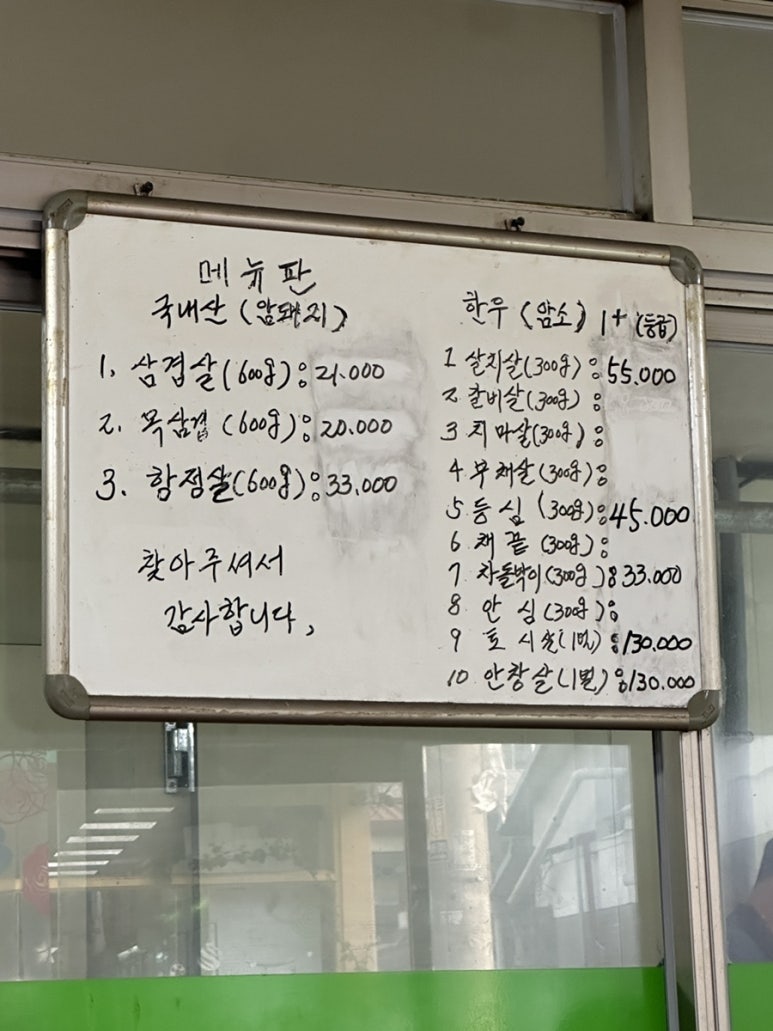 메뉴판
국내산 (암돼지)
1. 삼겹살(600g): 21.000
2. 목삼겹 (600g): 20.000
3. 항정살(600g): 33.000
찾아주셔서
감사합니다,
한우 (암소) 1+ (등급)
1 살치살(300g): 55.000
2 갈비살(300g):
3 치마살(300g):
4 부채살(300g):
5 등심 (300g): 45.000
6 채끝 (300g):
7 차돌박이(300g): 33.000
8 안심 (300g):
9 토시살(1벌): 130.000
10 안창살(1벌): 130.000